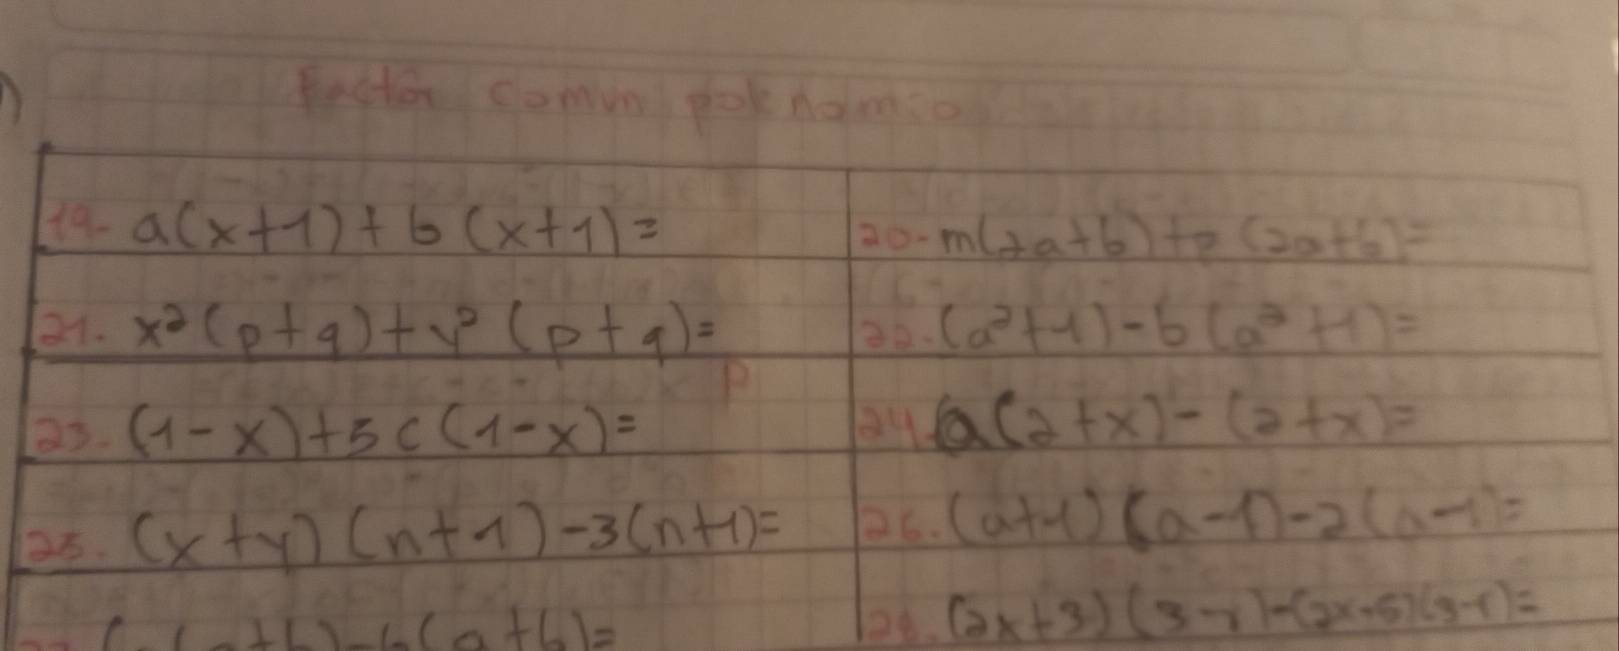 Factor común polinomio
19. a(x+1)+b(x+1)=
20. m(2a+b)+p(2a+b)=
21. x²(p+q)+y²(p+q)=
22. (a²+1)-b(a²+1)=
23. (1-x)+5c(1-x)=
24. a(2+x)-(2+x)=
25. (x+y)(n+1)-3(n+1)=
26. (a+1)(a-1)-2(a-1)=
(a+b)=
28. (2x+3)(3-r)-(2x-5)(3-r)=